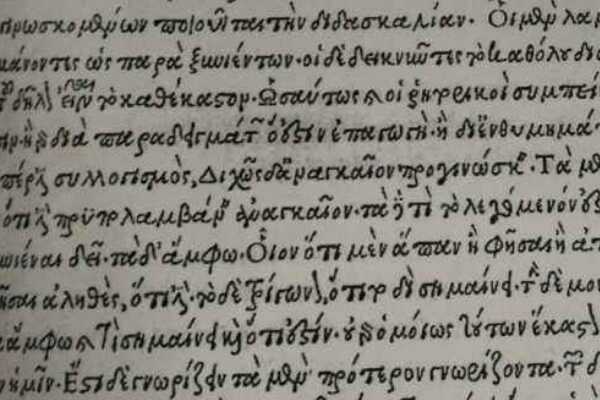 γινωσκομένων ποιοῦνται τὴν διδασκαλίαν. Οἱ μὲν λαμ
βάνοντες ὡς παρὰ ξυνιέντων· οἱ δὲ δεικνύντες τὸ καθόλου διὰ
τοῦ δῆλον εἶναι τὸ καθέκαστον. Ὡσαύτως καὶ οἱ ῥητορικοὶ συμπεί
ἢ γὰρ διὰ παραδειγμάτων ὅ ἐστιν ἐπαγωγὴ· ἢ δι' ἐνθυμημά
περ ἐστὶ συλλογισμὸς, Διχῶς δ' ἀναγκαῖον προγινώσκειν. Τὰ μὲν
ὅτι ἔστι προϋπολαμβάνειν ἀναγκαῖον. τὰ δὲ τί τὸ λεγόμενόν ἐσ
νιέναι δεῖ. τὰ δ' ἄμφω. Οἷον ὅτι μὲν ἅπαν ἢ φῆσαι ἢ ἀπ
φῆσαι ἀληθὲς, ὅτι ἔστι. τὸ δὲ τρίγωνον, ὅτι σημαίνει. τὴν δὲ μον
ἄμφω καὶ τί σημαίνει καὶ ὅτι ἐστίν. οὐ γὰρ ὁμοίως τούτων ἕκαστον
ἡμῖν. Ἔστι δὲ γνωρίζειν τὰ μὲν πρότερον γνωρίζοντα. τῶν δ